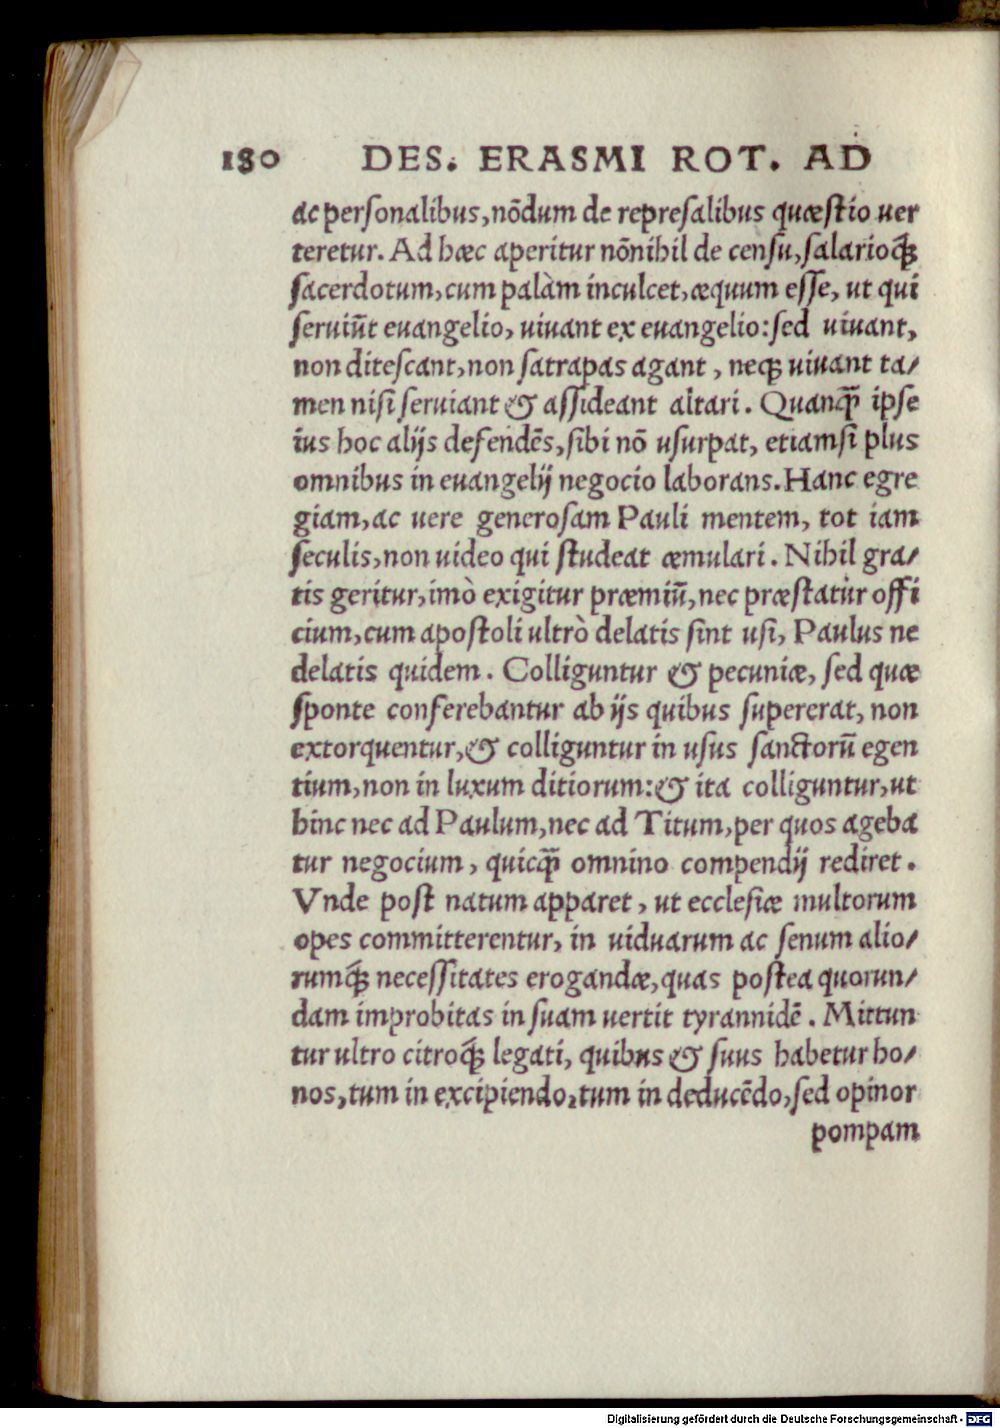 180 DES. ERASMI ROT. AD
ac personalibus, nōdum de represalibus quæstio uer
teretur. Ad hæc aperitur nōnihil de censu, salarioq́;
sacerdotum, cum palàm inculcet, æquum esse, ut qui
seruiūt euangelio, uiuant ex euangelio: sed uiuant,
non ditescant, non satrapas agant, neq; uiuant ta/
men nisi seruiant & assideant altari. Quanq̃ ipse
ius hoc alijs defendēs, sibi nō usurpat, etiamsi plus
omnibus in euangelij negocio laborans. Hanc egre
giam, ac uere generosam Pauli mentem, tot iam
seculis, non uideo qui studeat æmulari. Nihil gra/
tis geritur, imò exigitur præmiū, nec præstatur offi
cium, cum apostoli ultrò delatis sint usi, Paulus ne
delatis quidem. Colliguntur & pecuniæ, sed quæ
sponte conferebantur ab ijs quibus supererat, non
extorquentur, & colliguntur in usus sanctorū egen
tium, non in luxum ditiorum: & ita colliguntur, ut
hinc nec ad Paulum, nec ad Titum, per quos ageba
tur negocium, quicq̃ omnino compendij rediret.
Vnde post natum apparet, ut ecclesiæ multorum
opes committerentur, in uiduarum ac senum alio/
rumq́; necessitates erogandæ, quas postea quorun/
dam improbitas in suam uertit tyrannidē. Mittun
tur ultro citroq́; legati, quibus & suus habetur ho/
nos, tum in excipiendo, tum in deducēdo, sed opinor
pompam
Digitalisierung gefördert durch die Deutsche Forschungsgemeinschaft - DFG